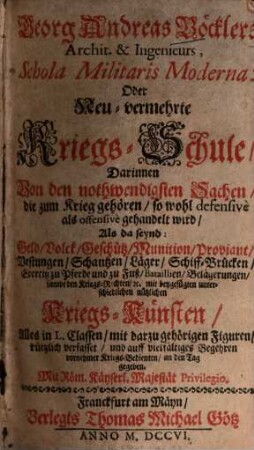 Georg Andreas Böcklers
Archit. & Ingenieurs,
Schola Militaris Moderna.
Oder
Neu-vermehrte
Kriegs-Schule/
Darinnen
Von den nothwendigsten Sachen/
die zum Krieg gehören/ so wohl defensivè
als offensivè gehandelt wird/
Als da seynd:
Geld/Volck/Geschütz/Munition/Proviant/
Vestungen/Schantzen/Läger/Schiff-Brücken/
zu Pferde und zu Fuß/Bataillien/Belägerungen/
Kriegs-Rechten/ &c. mit beygefügten unter-
schiedlichen nützlichen
Kriegs-Künsten/
Alles in L. Classen/ mit darzu gehörigen Figuren/
kürtzlich verfasset/ und auff vielfältiges Begehren
vornehmer Kriegs-Bedienten/ an den Tag
gegeben.
Mit Röm. Käyserl. Majestät Privilegio.
Franckfurt am Mäyn/
Verlegts Thomas Michael Götz
ANNO M, DCCVI.